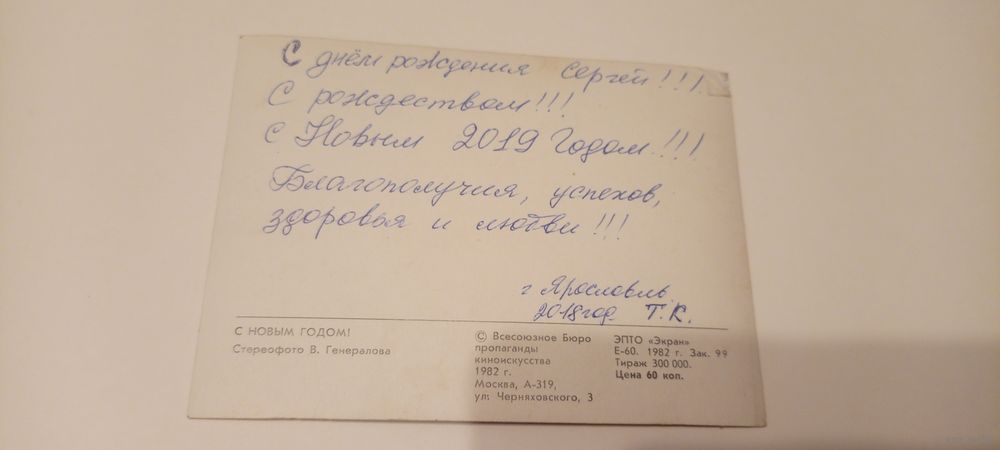 С днём рождения Сергей!!!
С рождеством!!!
С Новым 2019 Годом!!!
Благополучия, успехов,
здоровья и любви!!!
г Ярославль
2018 год. Т.К.
С НОВЫМ ГОДОМ!
Стереофото В. Генералова
© Всесоюзное Бюро
пропаганды
киноискусства
1982 г.
Москва, А-319,
ул: Черняховского, 3
ЭПТО «Экран»
Е-60. 1982 г. Зак. 99
Тираж 300 000.
Цена 60 коп.